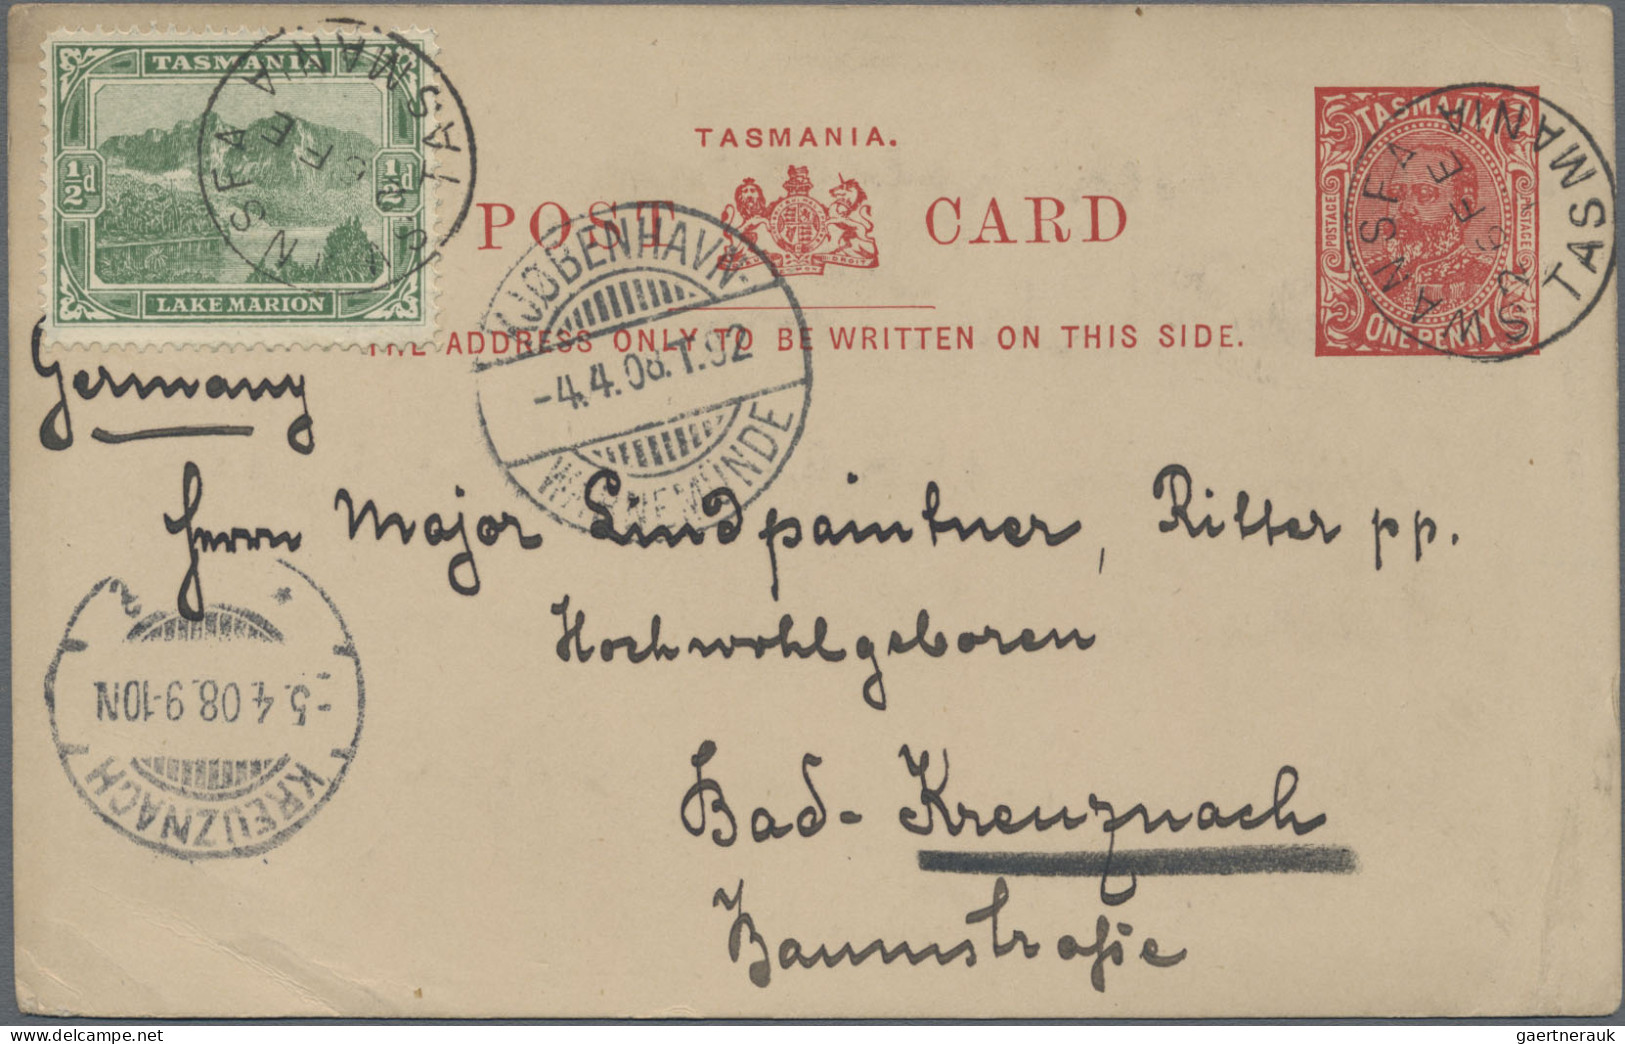 TASMANIA
½d ½d
LAKE MARION
TASMANIA.
POST CARD
THE ADDRESS ONLY TO BE WRITTEN ON THIS SIDE.
TASMANIA
POSTAGE POSTAGE
ONE PENNY
SWANSEA TASMANIA
SWANSEA TASMANIA
KJØBENHAVN.
-4.4.08.T.92
WARNEMÜNDE
Germany
Herrn Major Lindpaintner, Ritter pp.
Hochwohlgeboren
Bad-Kreuznach
Baumstraße
KREUZNACH
-5.4.08.9-10N
gaertnerauk